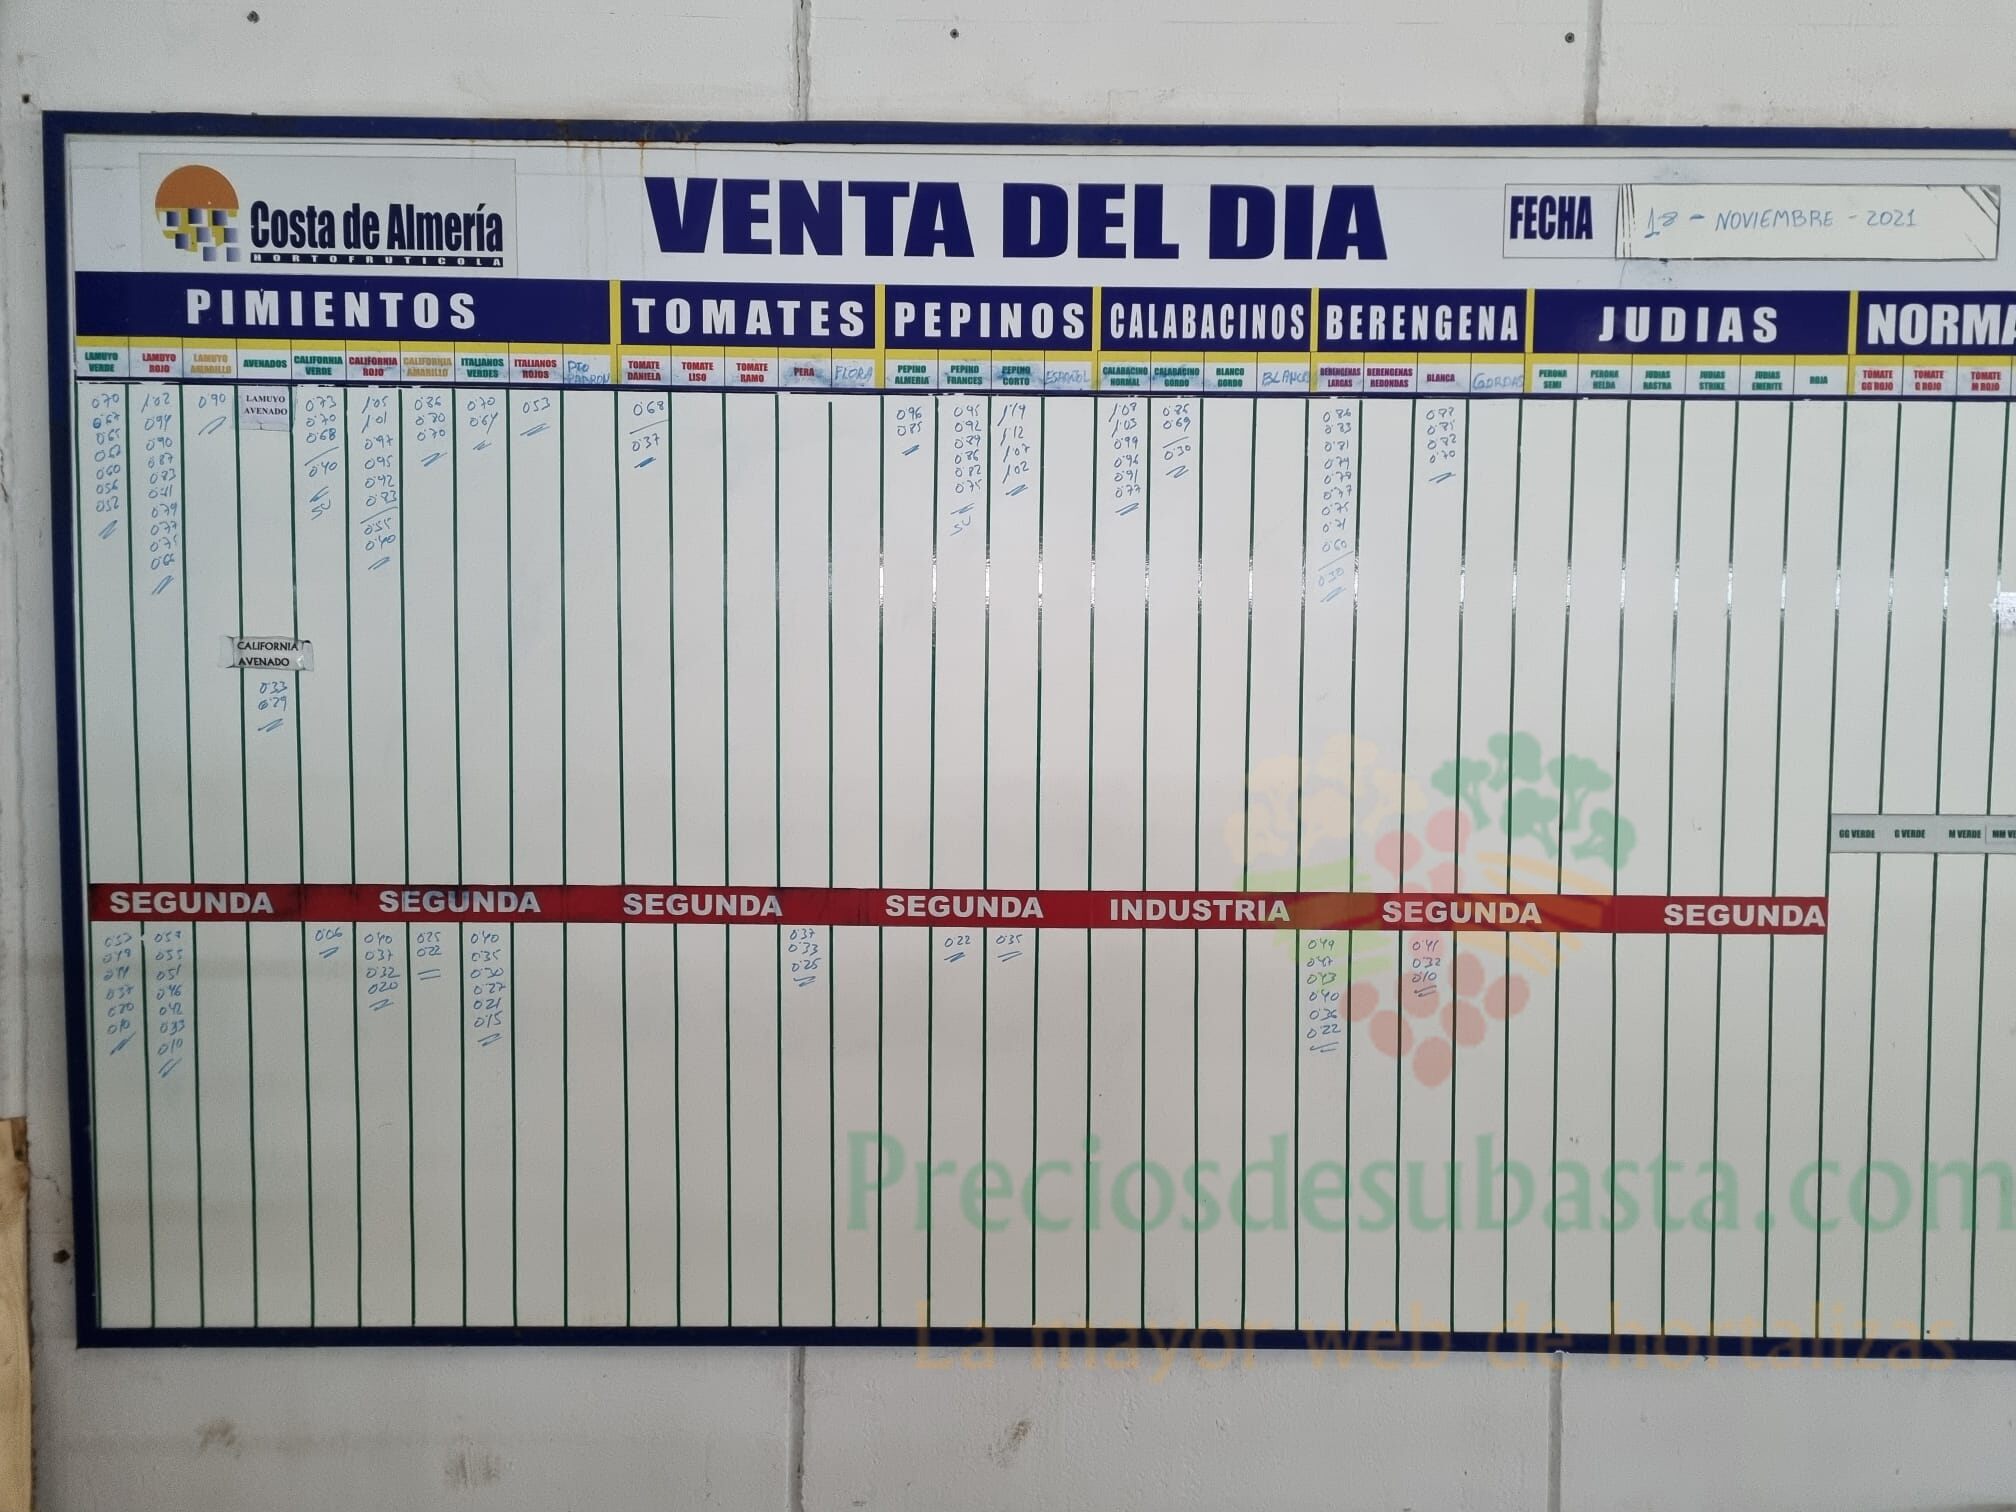 Costa de Almería
HORTOFRUTICOLA
VENTA DEL DIA
FECHA
18 - NOVIEMBRE - 2021
PIMIENTOS TOMATES PEPINOS CALABACINOS BERENGENA JUDIAS NORMA
LAMUYO VERDE
LAMUYO ROJO
LAMUYO AMARILLO
AVENADOS
CALIFORNIA VERDE
CALIFORNIA ROJO
CALIFORNIA AMARILLO
ITALIANOS VERDES
ITALIANOS ROJOS
PADRON
TOMATE DANIELA
TOMATE LISO
TOMATE RAMO
PERA
FLORA
PEPINO ALMERIA
PEPINO FRANCES
PEPINO CORTO
ESPAÑOL
CALABACINO NORMAL
CALABACINO GORDO
BLANCO GORDO
BLANCO
BERENGENAS LARGAS
BERENGENAS REDONDAS
BLANCA
GORDAS
PERONA SEMI
PERONA HELDA
JUDIAS RASTRA
JUDIAS STRIKE
JUDIAS EMERITE
ROJA
TOMATE GG ROJO
TOMATE G ROJO
TOMATE M ROJO
0'70
0'67
0'65
0'60
0'56
0'52
1'02
0'94
0'90
0'87
0'83
0'79
0'77
0'75
0'90
LAMUYO
AVENADO
0'73
0'70
0'68
0'40
SU
1'05
1'01
0'97
0'95
0'92
0'83
0'55
0'40
0'86
0'80
0'70
0'70
0'64
0'53
0'68
0'37
0'96
0'85
0'95
0'92
0'89
0'86
0'82
0'75
SU
1'14
1'12
1'07
1'02
1'03
0'99
0'96
0'91
0'77
0'69
0'30
0'86
0'83
0'81
0'79
0'77
0'75
0'71
0'60
0'30
0'82
0'70
CALIFORNIA
AVENADO
0'33
0'29
GG VERDE G VERDE M VERDE MM VE
SEGUNDA SEGUNDA SEGUNDA SEGUNDA INDUSTRIA SEGUNDA SEGUNDA
0'49
0'37
0'10
0'55
0'51
0'46
0'42
0'33
0'10
0'06
0'40
0'37
0'32
0'20
0'25
0'22
0'40
0'35
0'30
0'27
0'21
0'15
0'37
0'33
0'25
0'22
0'35
0'49
0'47
0'43
0'40
0'36
0'22
0'41
0'32
0'10
Preciosdesubasta.com
La mayor web de hortalizas